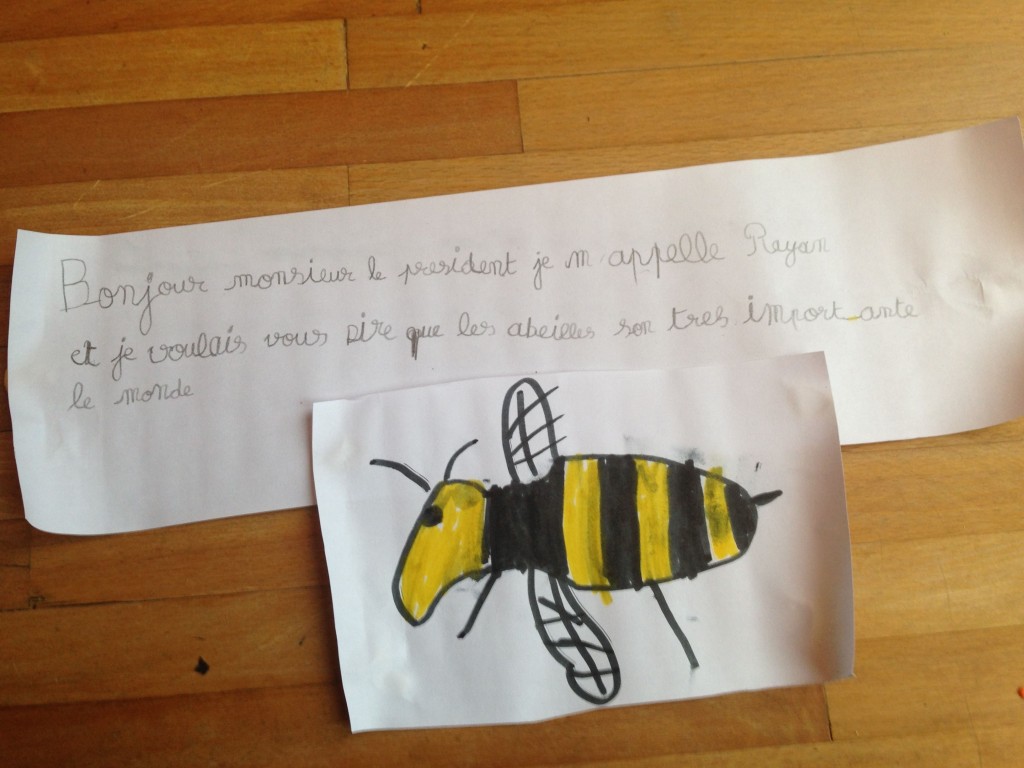 Bonjour monsieur le president je m'appelle Rayan
et je voulais vous dire que les abeilles son tres import_ante
le monde